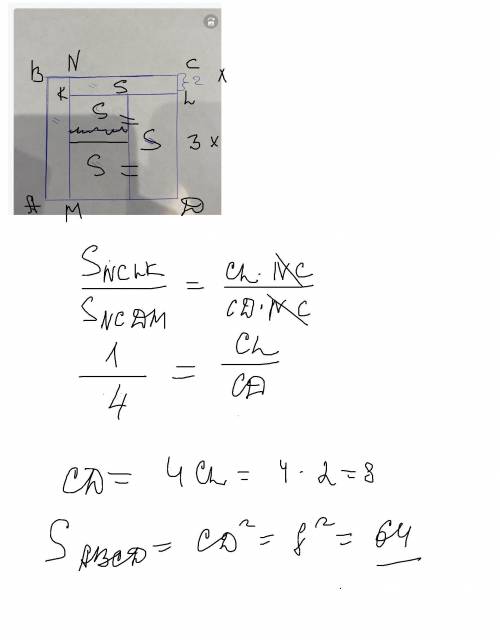 B N C x
K S } 2
L
S
S 3 x
S
A M D
S NCLK / S NCDM = CL · NC / CD · NC
1 / 4 = CL / CD
CD = 4 CL = 4 · 2 = 8
S ABCD = CD² = 8² = 64